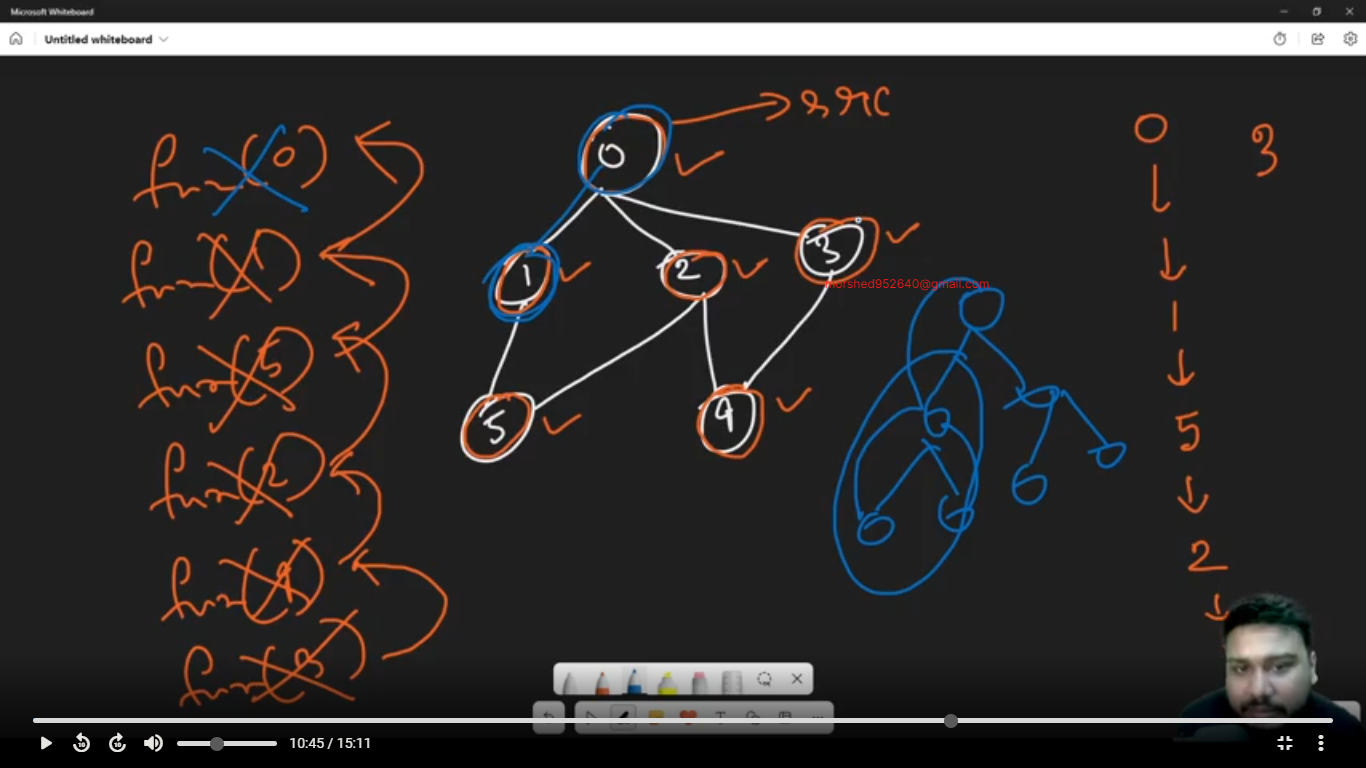 Microsoft Whiteboard
Untitled whiteboard
fun(0)
fun(1)
fun(5)
fun(2)
fun(4)
fun(3)
src
0
1
2
3
5
4
morshed952640@gmail.com
0
1
5
2
3
10
10
10:45 / 15:11